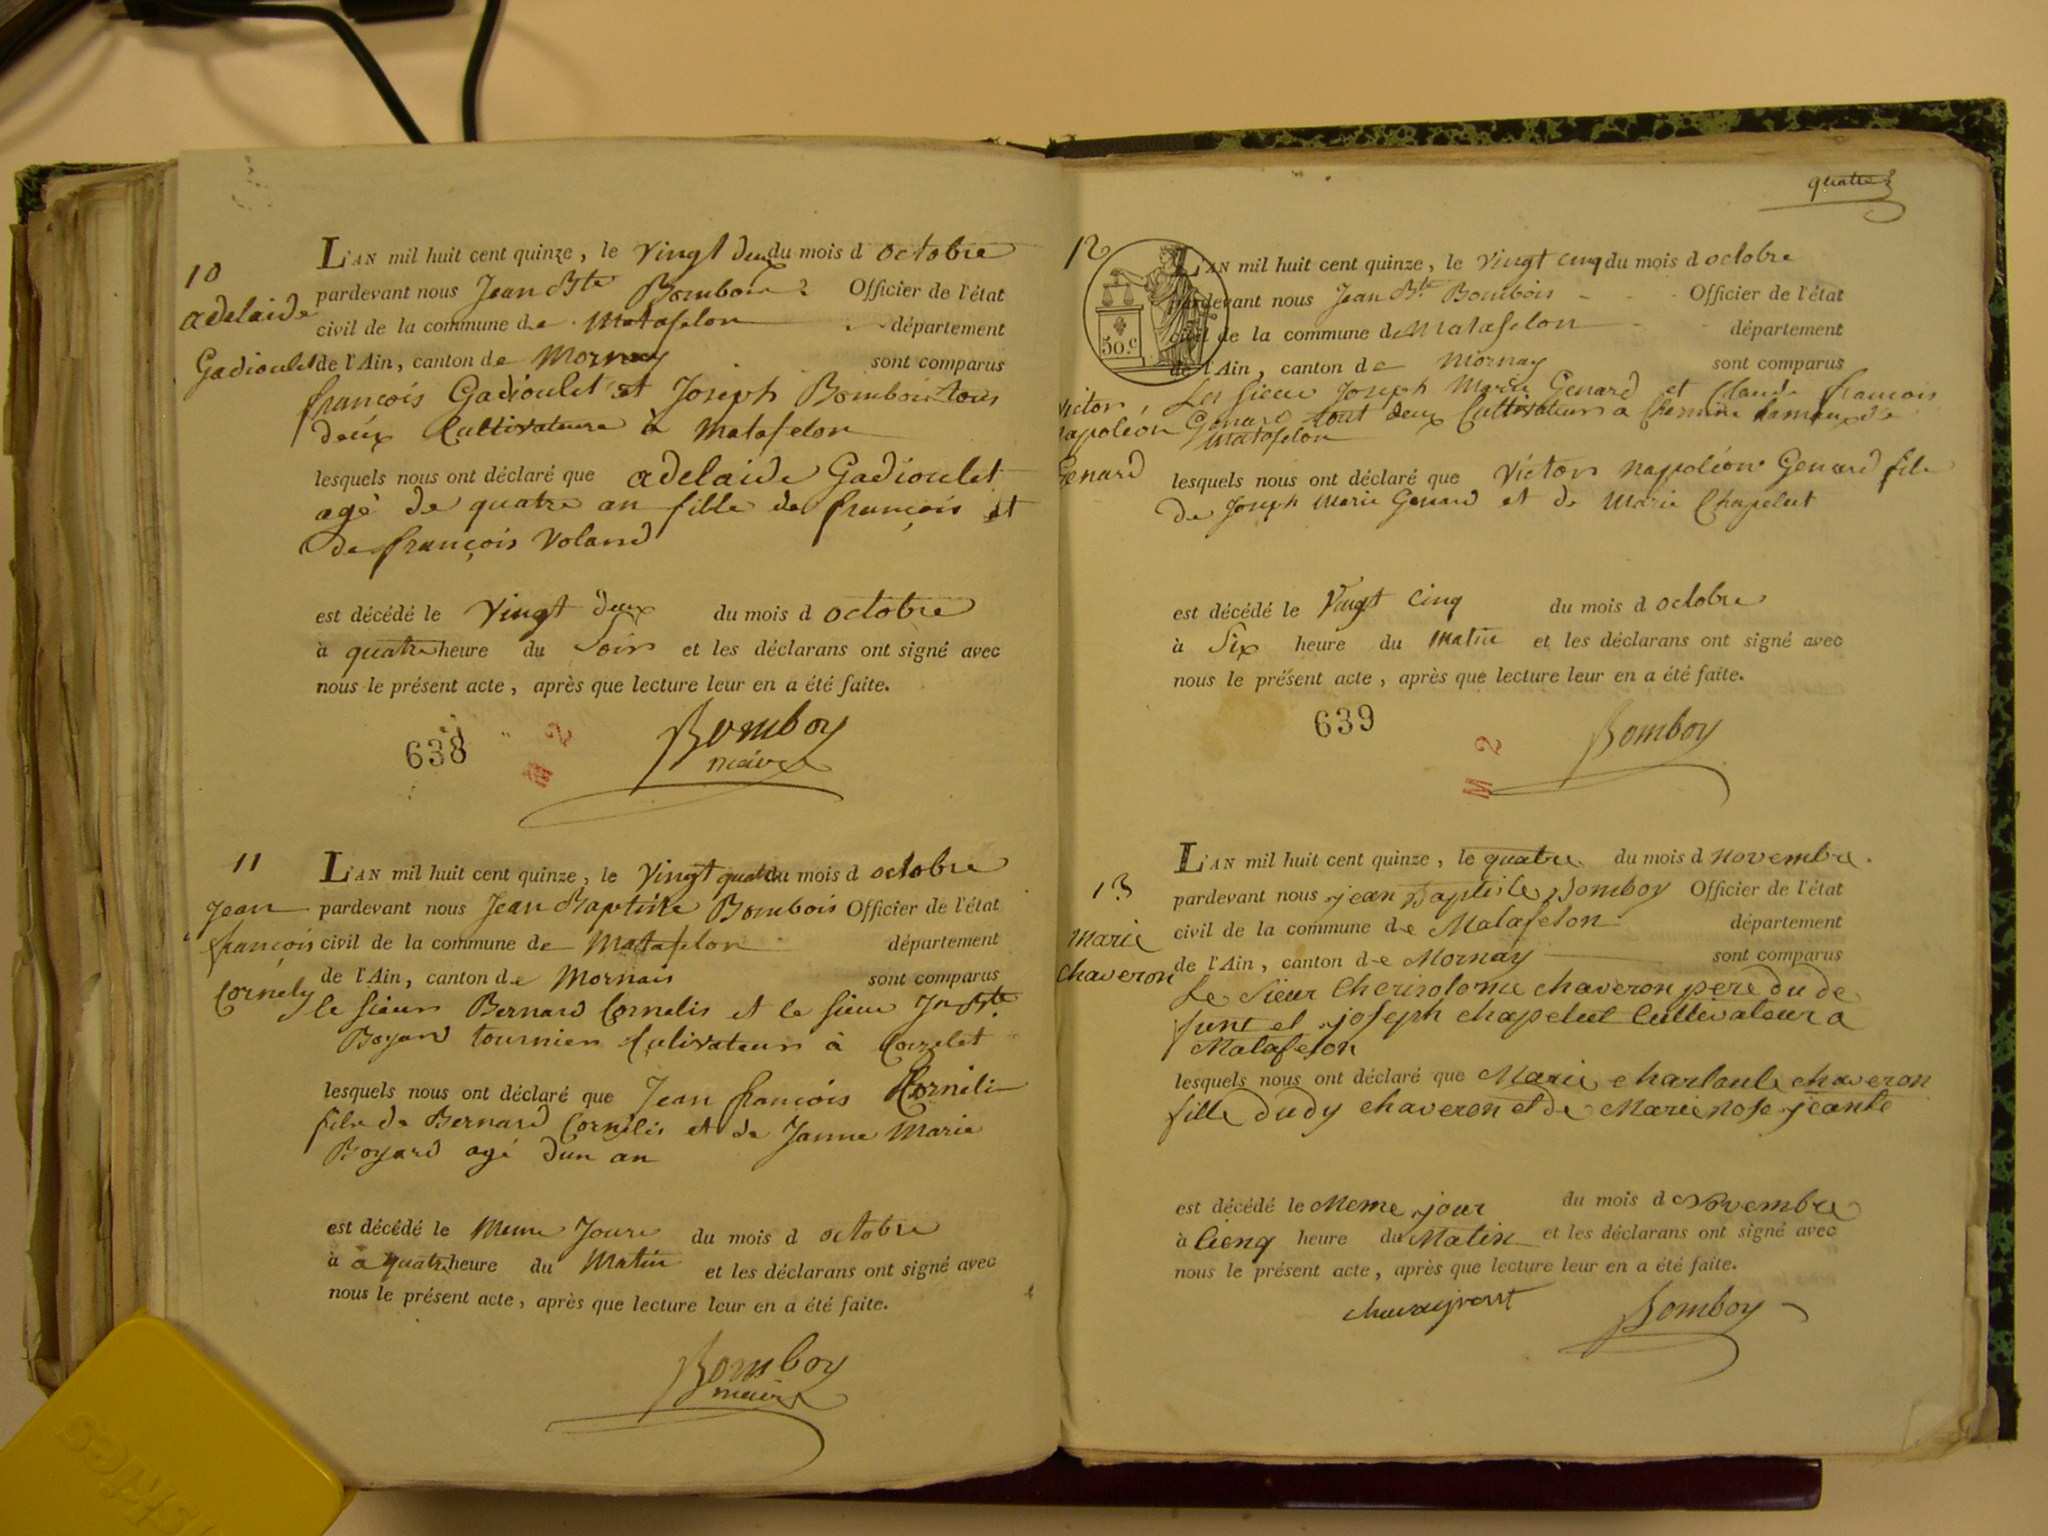 10
adelaide
Gadioulet
L'AN mil huit cent quinze, le Vingt deux du mois d octobre
pardevant nous Jean Bte Bombois Officier de l'état
civil de la commune de Matafelon département
de l'Ain, canton de Mornay sont comparus
françois Gadioulet et Joseph Bombois tous
deux Cultivateurs à Matafelon
lesquels nous ont déclaré que adelaide Gadioulet
agé de quatre an fille de françois et
de françois Voland
est décédé le Vingt deux du mois d octobre
à quatre heure du Soir et les déclarans ont signé avec
nous le présent acte, après que lecture leur en a été faite.
638
M 2
Bomboy
maire
11
Jean
françois
Cornely
L'AN mil huit cent quinze, le Vingt quatre du mois d octobre
pardevant nous Jean Baptiste Bombois Officier de l'état
civil de la commune de Matafelon département
de l'Ain, canton de Mornais sont comparus
le Sieur Bernard Cornelis et le Sieur Jn Bte
Boyard tournier Cultivateur à Corzelet
lesquels nous ont déclaré que Jean françois Cornili
fils de Bernard Cornelis et de Janne Marie
Boyard agé dun an
est décédé le Meme Jour du mois d octobre
à a quatre heure du Matin et les déclarans ont signé avec
nous le présent acte, après que lecture leur en a été faite.
Bomboy
maire
quatre
12
50.c
Victor
napoléon
Genard
L'AN mil huit cent quinze, le Vingt cinq du mois d octobre
pardevant nous Jean Bte Bombois Officier de l'état
civil de la commune de Matafelon département
de l'Ain, canton de Mornay sont comparus
Les Sieur Joseph Marie Genard et Claude françois
Genard tout deux Cultivateur a hameux de
Matafelon
lesquels nous ont déclaré que Victor napoléon Genard fils
de Joseph Marie Genard et de Marie Chapelut
est décédé le Vingt Cinq du mois d octobre
à Six heure du Matin et les déclarans ont signé avec
nous le présent acte, après que lecture leur en a été faite.
639
M 2
Bomboy
13
Marie
Chaveron
L'AN mil huit cent quinze, le quatre du mois d novembre
pardevant nous jean Baptiste Bomboy Officier de l'état
civil de la commune de Matafelon département
de l'Ain, canton de Mornay sont comparus
Le Sieur chaveron pere du de
funt et joseph chapelut Cultivateur a
Matafelon
lesquels nous ont déclaré que Marie charlaute chaveron
fille dudy chaveron et de Marie
est décédé le Meme jour du mois d Novembre
à Cienq heure du Matin et les déclarans ont signé avec
nous le présent acte, après que lecture leur en a été faite.
Bomboy